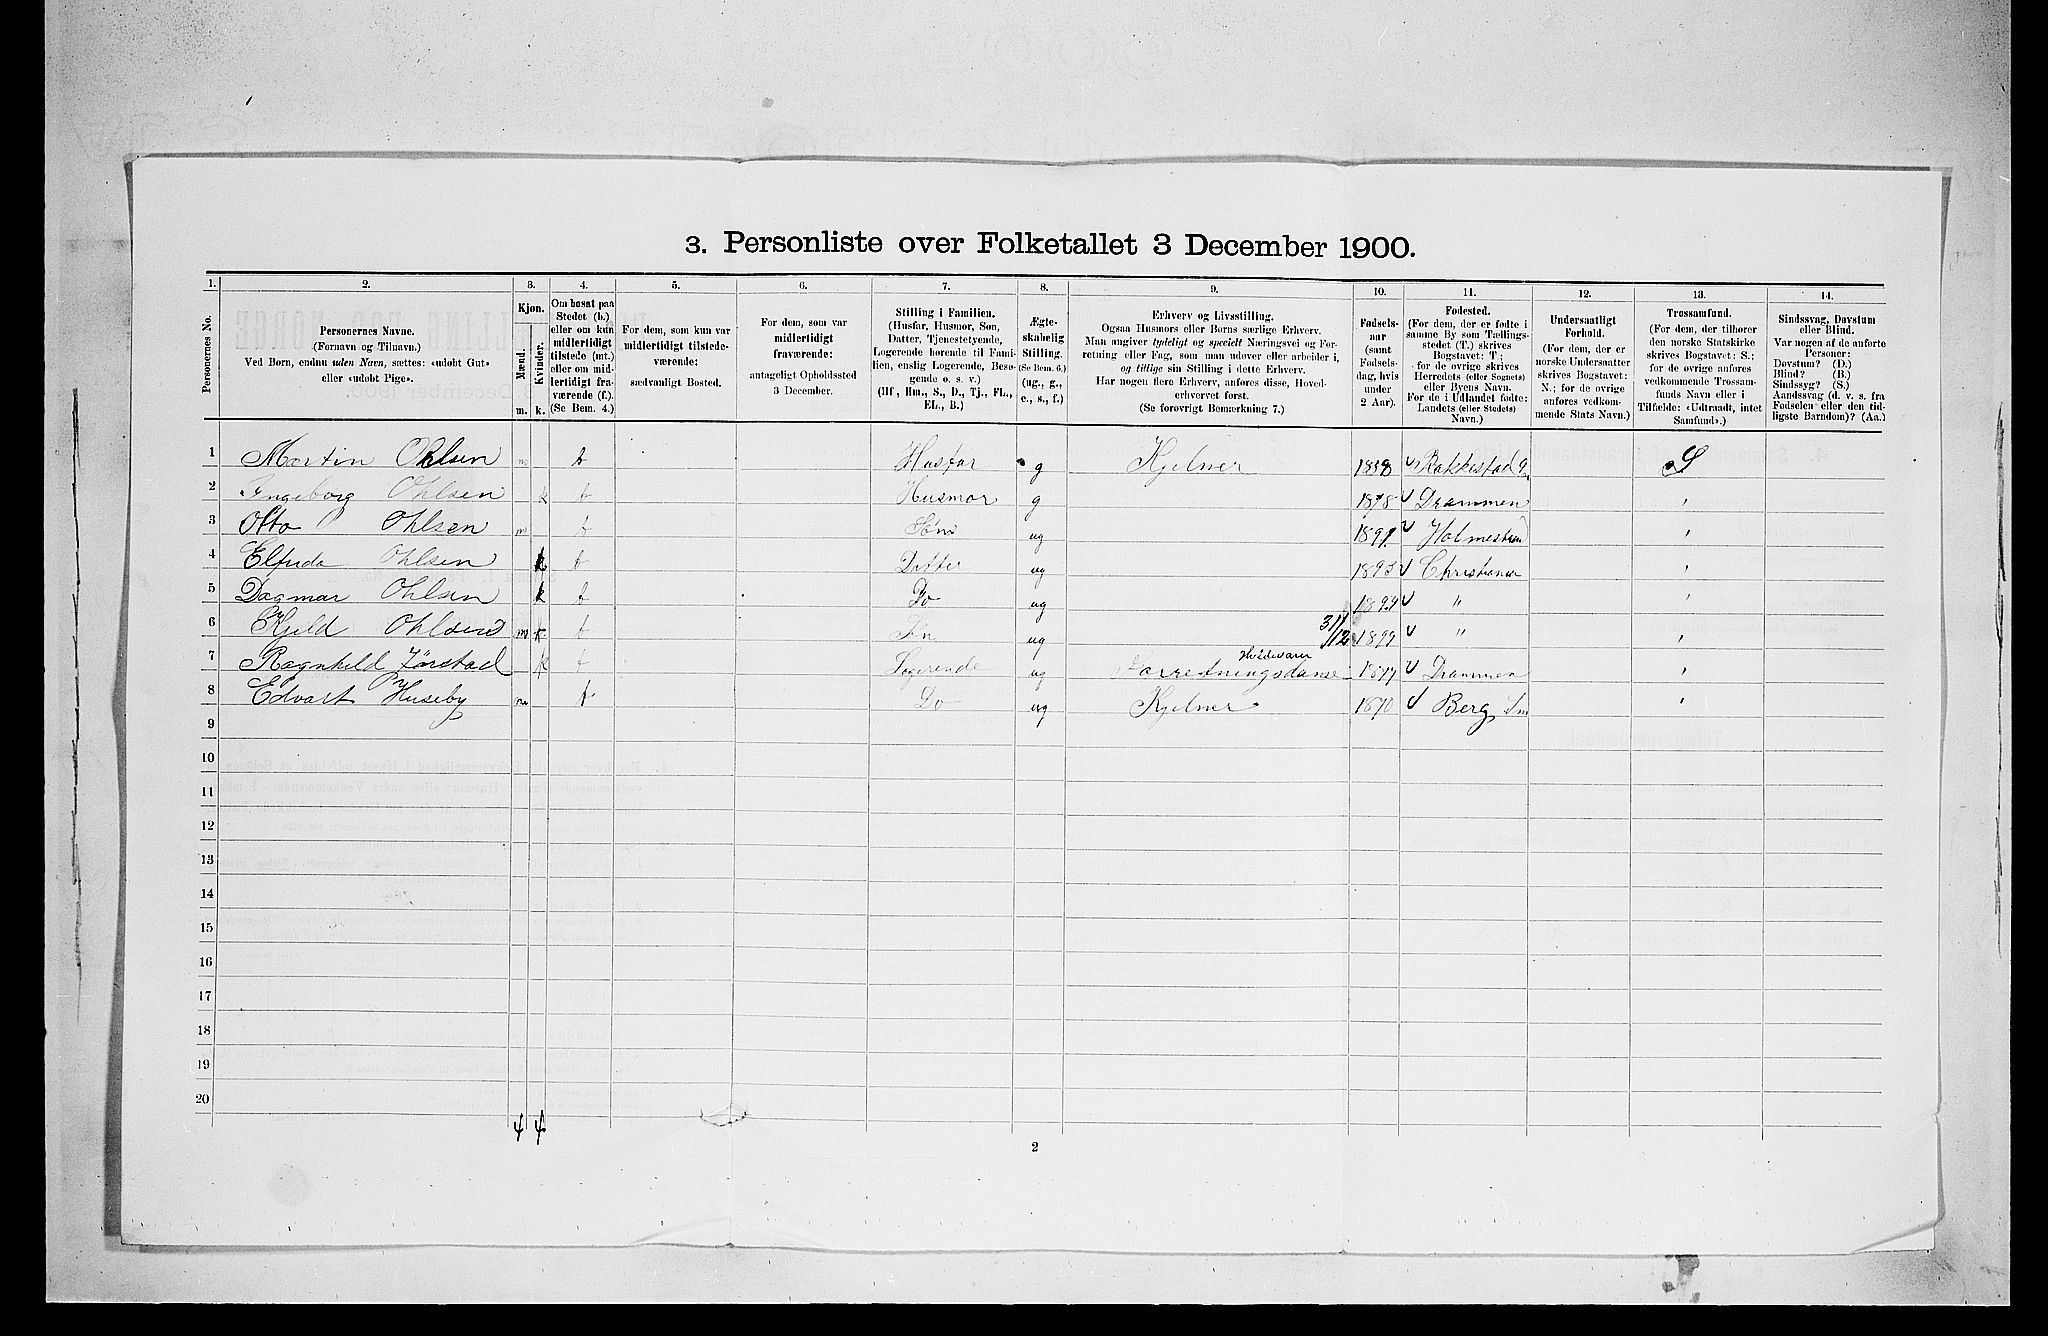 3. Personliste over Folketallet 3 December 1900.
1. 2. 3. 4. 5. 6. 7. 8. 9. 10. 11. 12. 13. 14.
Personernes No.
Personernes Navne.
(Fornavn og Tilnavn.)
Ved Børn, endnu uden Navn, sættes: «udøbt Gut»
eller «udøbt Pige».
Kjøn.
Mænd.
Kvinder.
m. k.
Om bosat paa
Stedet (b.)
eller om kun
midlertidigt
tilstede (mt.)
eller om mid-
lertidigt fra-
værende (f.)
(Se Bem. 4.)
For dem, som kun var
midlertidigt tilstede-
værende:
sædvanligt Bosted.
For dem, som var
midlertidigt
fraværende:
antageligt Opholdssted
3 December.
Stilling i Familien.
(Husfar, Husmor, Søn,
Datter, Tjenestetyende,
Logerende hørende til Fami-
lien, enslig Logerende, Besø-
gende o. s. v.)
(Hf., Hm., S., D., Tj., FL.,
EL., B.)
Ægte-
skabelig
Stilling.
(Se Bem. 6.)
(ug., g.,
e., s., f.)
Erhverv og Livsstilling.
Ogsaa Husmors eller Børns særlige Erhverv.
Man angiver tydeligt og specielt Næringsvei og For-
retning eller Fag, som man udøver eller arbeider i,
og tillige sin Stilling i dette Erhverv.
Har nogen flere Erhverv, anføres disse, Hoved-
erhvervet først.
(Se forøvrigt Bemærkning 7.)
Fødsels-
aar
(samt
Fødsels-
dag, hvis
under
2 Aar).
Fødested.
(For dem, der er fødte i
samme By som Tællings-
stedet (T.) skrives
Bogstavet: T;
for de øvrige skrives
Herredets (eller Sognets)
eller Byens Navn.
For de i Udlandet fødte:
Landets (eller Stedets)
Navn.)
Undersaatligt
Forhold.
(For dem, der er
norske Undersaatter
skrives Bogstavet:
N.; for de øvrige
anføres vedkom-
mende Stats Navn.)
Trossamfund.
(For dem, der tilhører
den norske Statskirke
skrives Bogstavet: S.;
for de øvrige anføres
vedkommende Trossam-
funds Navn eller i
Tilfælde: «Udtraadt, intet
Samfund».)
Sindssvag, Døvstum
eller Blind.
Var nogen af de anførte
Personer:
Døvstum? (D.)
Blind? (B.)
Sindssyg? (S.)
Aandssvag (d. v. s. fra
Fødselen eller den tid-
ligste Barndom)? (Aa.)
1 Martin Ohlsen m b Husfar g Kjelner Rakkestad S
2 Ingeborg Ohlsen k b Husmor g 1878 Drammen "
3 Otto Ohlsen m b Søn ug 1891 Holmestrand "
4 Elfrida Ohlsen k b Datter ug 1893 Christiania "
5 Dagmar Ohlsen k b Do ug " "
6 Kjeld Ohlsen m b Søn ug 31/12 1899 " "
7 Ragnhild k b Logerende ug Hvidevare
Forretningsdame 1877 Drammen "
8 Edvart Huseby m b Do ug Kjelner 1870 Berg Sm "
9
10
11
12
13
14
15
16
17
18
19
20
4 4
2